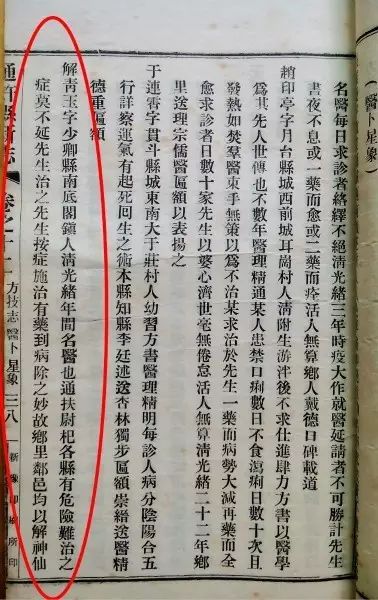 (醫卜星象)
名醫每日求診者絡繹不絕淸光緒三年時疫大作就醫延請者不可勝計先生
晝夜不息或一藥而愈或二藥而痊活人無算鄉人戴德口碑載道
趙印亭字月台縣城西前城耳崗村人淸附生游泮後不求仕進肆力方書以醫學
爲其先人世傳也不數年醫理精通某人患禁口痢數日不食瀉痢日數十次且
發熱如焚羣醫束手無策以爲不治某求治於先生一藥而病勢大減再藥而全
愈求診者日數十家先生以婆心濟世毫無倦怠活人無算淸光緒二十二年鄉
里送理宗儒醫匾額以表揚之
于連霄字貫斗縣城東南大于莊村人幼習方書醫理精明每診人病分陰陽合五
行詳察運氣有起死回生之術本縣知縣李廷述送杏林獨步匾額崇縉送醫精
德重匾額
解靑玉字少卿縣南底閣鎭人淸光緒年間名醫也通扶尉杞各縣有危險難治之
症莫不延先生治之先生按症施治有藥到病除之妙故鄉里鄰邑均以解神仙
通許縣新志 卷之十一 方技志 醫卜星象 三八 新豫印刷所印